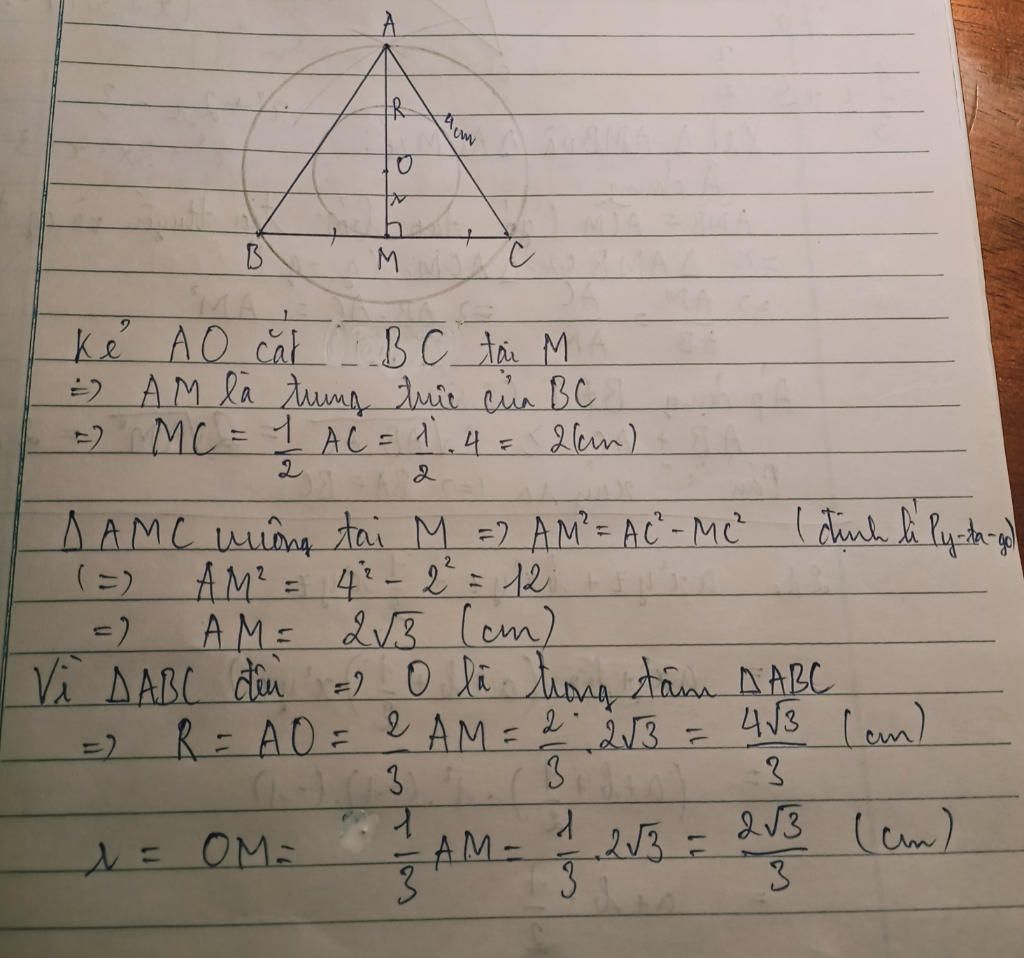 A
R
4cm
O
r
B
M
C
Kẻ AO cắt BC tại M
=> AM là trung trực của BC
=> MC = 1/2 AC = 1/2 . 4 = 2(cm)
Δ AMC vuông tại M => AM² = AC² - MC² (định lí Py-ta-go)
(=> AM² = 4² - 2² = 12
=> AM = 2√3 (cm)
Vì ΔABC đều => O là trọng tâm ΔABC
=> R = AO = 2/3 AM = 2/3 . 2√3 = 4√3/3 (cm)
r = OM = 1/3 AM = 1/3 . 2√3 = 2√3/3 (cm)